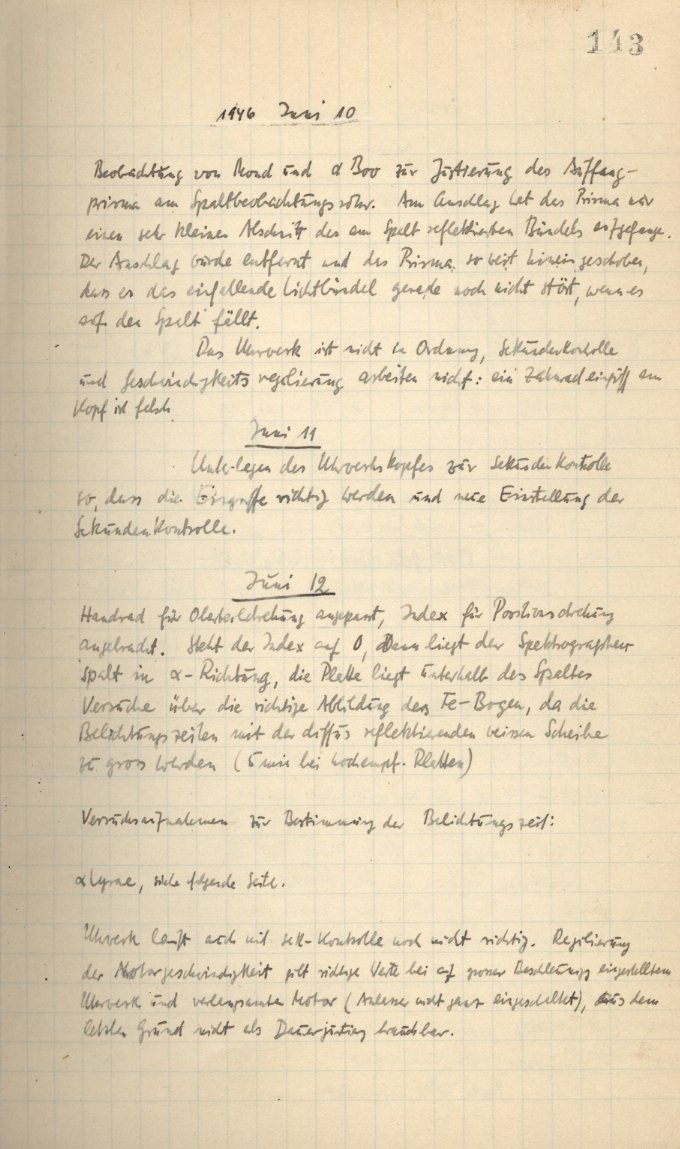 113
1946 Juni 10
Beobachtung von Mond und α Boo zur Justierung des Auffang-
prisma am Spaltbeobachtungsrohr. Am Anschlag hat das Prisma nur
einen sehr kleinen Abschnitt des am Spalt reflektierten Bündels aufgefangen.
Der Anschlag wurde entfernt und das Prisma so weit hineingeschoben,
dass es das einfallende Lichtbündel gerade noch nicht stört, wenn es
auf den Spalt fällt.
Das Uhrwerk ist nicht in Ordnung, Sekundenkontrolle
und Geschwindigkeitsregulierung arbeiten nicht: ein Zahnradeingriff am
Kopf ist falsch
Juni 11
Unterlegen des Uhrwerkskopfes zur Sekundenkontrolle
so, dass die Eingriffe richtig werden und neue Einstellung der
Sekundenkontrolle.
Juni 12
Handrad für Oberteildrehung angepasst, Index für Positionsdrehung
angebracht. Steht der Index auf 0, dann liegt der Spektrographen
spalt in α-Richtung, die Platte liegt unterhalb des Spaltes
Versuche über die richtige Abbildung des Fe-Bogen, da die
Belichtungszeiten mit der diffus reflektierenden weissen Scheibe
zu gross werden (5 min bei hochempf. Platten)
Versuchsaufnahmen zur Bestimmung der Belichtungszeit:
α Lyrae, siehe folgende Seite.
Uhrwerk läuft auch mit Sek-Kontrolle noch nicht richtig. Regulierung
der Motorgeschwindigkeit gibt richtige Werte bei auf grosser Beschleunigg eingestelltem
Uhrwerk und verlangsamtem Motor (Anlasser nicht ganz eingeschaltet), aus dem
letzten Grund nicht als Dauerjustierung brauchbar.